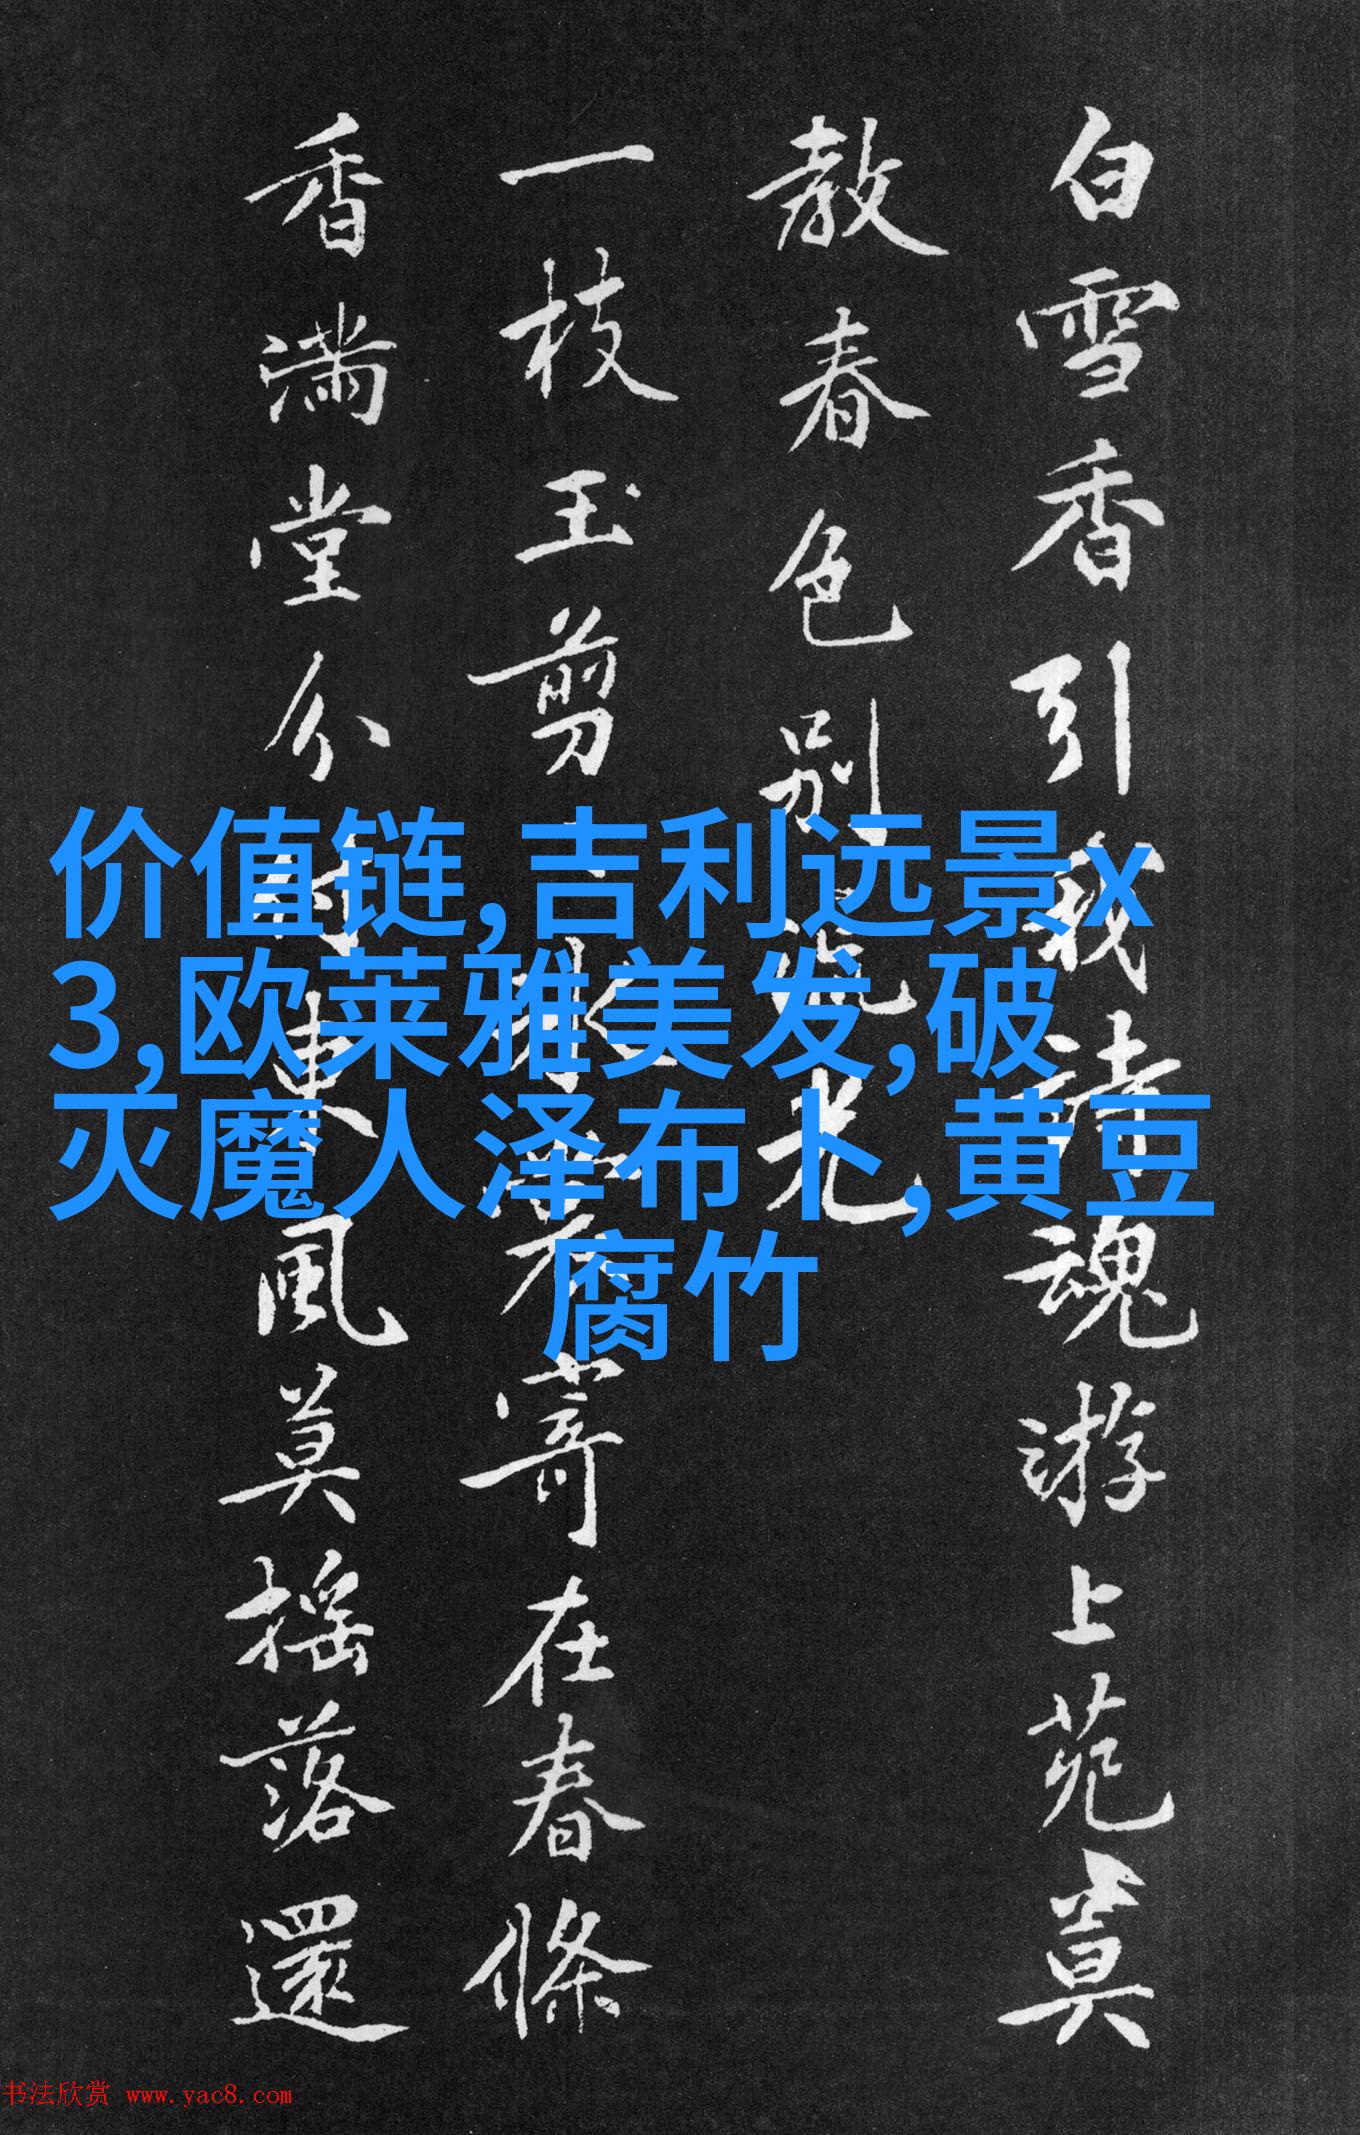 白雪香引我詩魂游上苑莫
教春色別流光
一枝玉剪
寄在春條
香滿堂分
東風莫搖落還
价值链,吉利远景x
3,欧莱雅美发,破
灭魔人泽布卜,黄豆
腐竹
书法欣赏 www.yac8.com